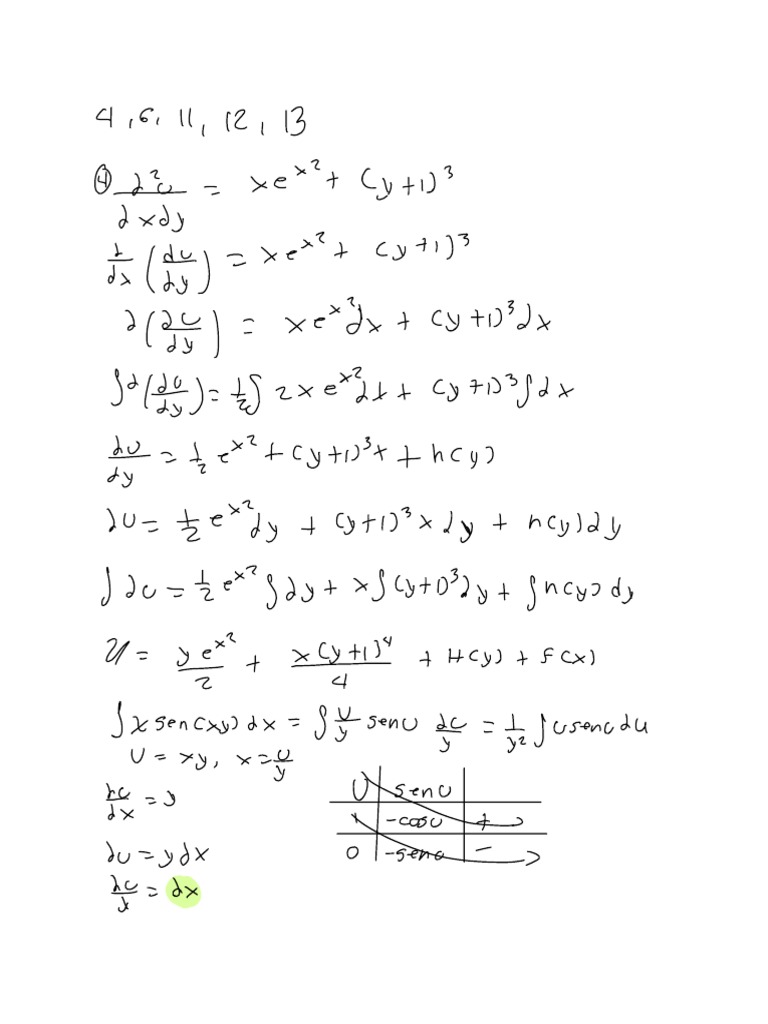 4, 6, 11, 12, 13
④ ∂²u/∂x∂y = xe^x² + (y+1)³
∂/∂x (∂u/∂y) = xe^x² + (y+1)³
∂(∂u/∂y) = xe^x² ∂x + (y+1)³ ∂x
∫∂(∂u/∂y) = 1/2 ∫ 2xe^x² ∂x + (y+1)³ ∫∂x
∂u/∂y = 1/2 e^x² + (y+1)³x + h(y)
∂u = 1/2 e^x² ∂y + (y+1)³ x ∂y + h(y)∂y
∫∂u = 1/2 e^x² ∫∂y + x∫(y+1)³∂y + ∫h(y)dy
U = ye^x²/2 + x(y+1)⁴/4 + H(y) + F(x)
∫x sen(xy) dx = ∫ u/y sen u du/y = 1/y² ∫u sen u du
u = xy, x = u/y
du/dx = y
du = y dx
du/y = dx
U | sen u |
1 | -cos u | +
0 | -sen u | -